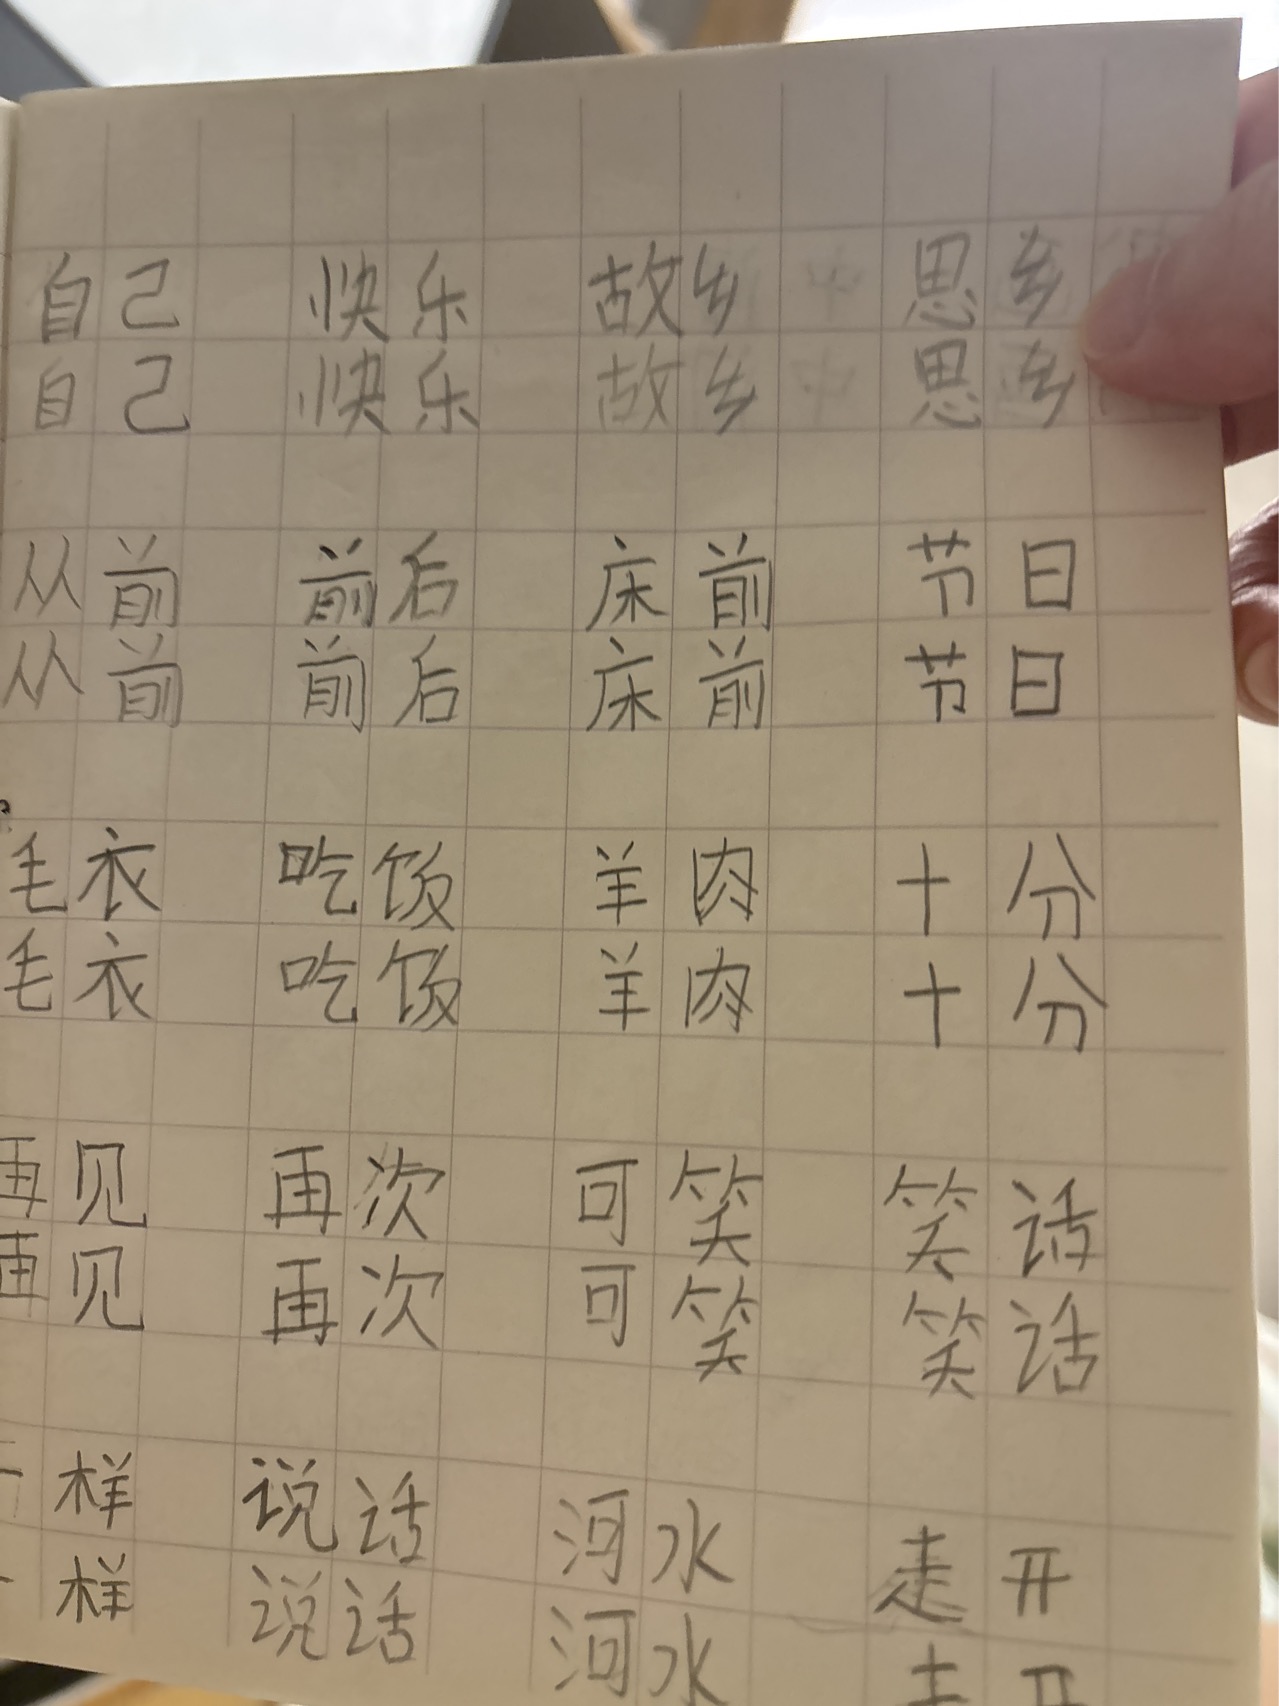 自己 快乐 故乡 思乡
自己 快乐 故乡 思乡
从前 前后 床前 节日
从前 前后 床前 节日
毛衣 吃饭 羊肉 十分
毛衣 吃饭 羊肉 十分
再见 再次 可笑 笑话
再见 再次 可笑 笑话
样 说话 河水 走开
样 说话 河水 走开